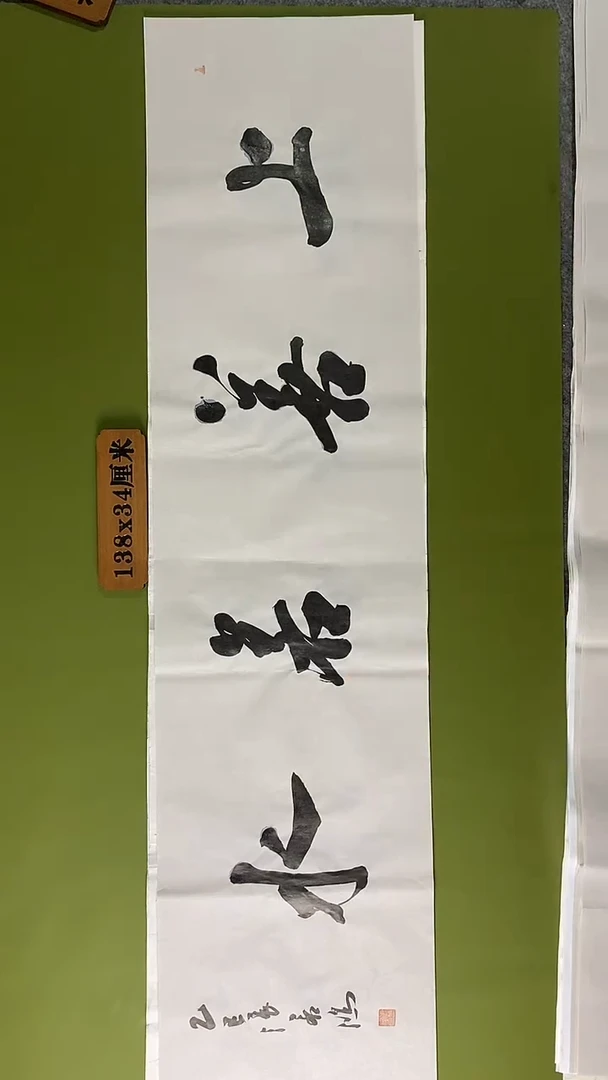 上善若水
乙巳
138x34厘米